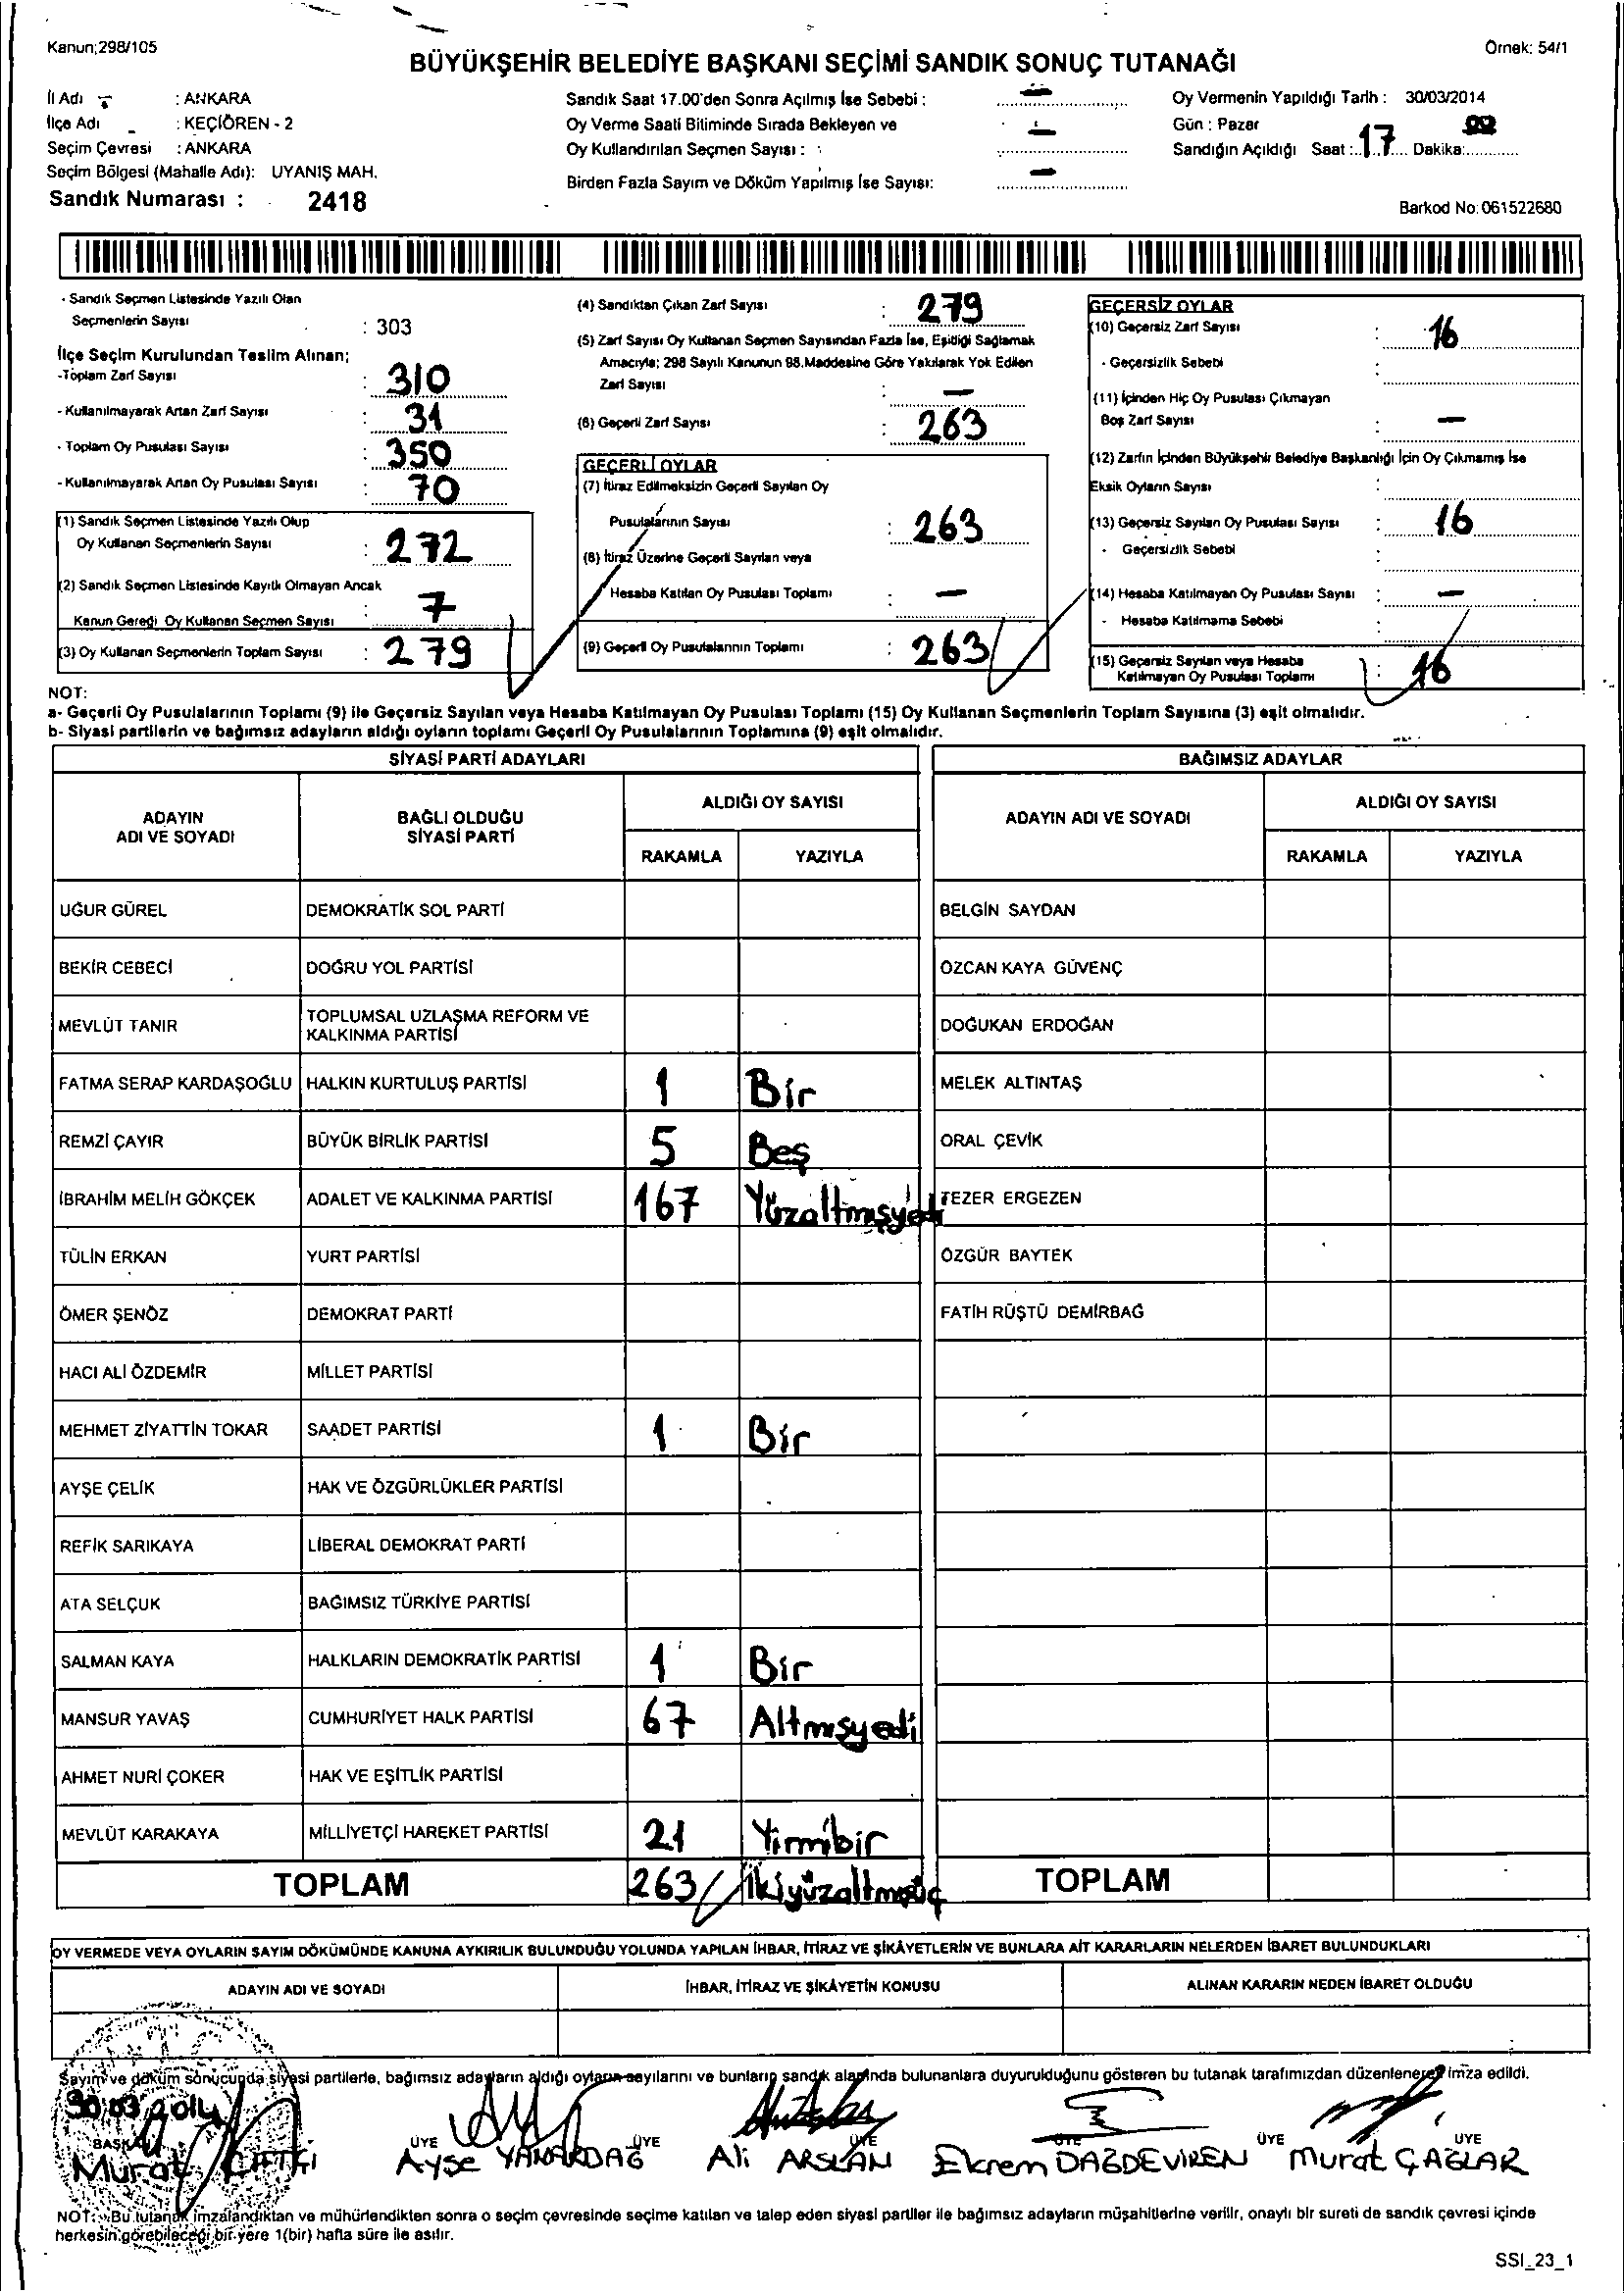 Kanun;298/105
Örnek: 54/1
BÜYÜKŞEHİR BELEDİYE BAŞKANI SEÇİMİ SANDIK SONUÇ TUTANAĞI
İl Adı : ANKARA
İlçe Adı : KEÇİÖREN - 2
Seçim Çevresi : ANKARA
Seçim Bölgesi (Mahalle Adı): UYANIŞ MAH.
Sandık Numarası : 2418
Sandık Saat 17.00'den Sonra Açılmış İse Sebebi : —
Oy Verme Saati Bitiminde Sırada Bekleyen ve
Oy Kullandırılan Seçmen Sayısı : —
Birden Fazla Sayım ve Döküm Yapılmış İse Sayısı: —
Oy Vermenin Yapıldığı Tarih : 30/03/2014
Gün : Pazar
Sandığın Açıldığı Saat :..17.... Dakika:............
Barkod No:061522680
- Sandık Seçmen Listesinde Yazılı Olan
Seçmenlerin Sayısı : 303
İlçe Seçim Kurulundan Teslim Alınan;
-Toplam Zarf Sayısı : 310
- Kullanılmayarak Artan Zarf Sayısı : 31
- Toplam Oy Pusulası Sayısı : 350
- Kullanılmayarak Artan Oy Pusulası Sayısı : 70
(1) Sandık Seçmen Listesinde Yazılı Olup
Oy Kullanan Seçmenlerin Sayısı : 272
(2) Sandık Seçmen Listesinde Kayıtlı Olmayan Ancak
Kanun Gereği Oy Kullanan Seçmen Sayısı : 7
(3) Oy Kullanan Seçmenlerin Toplam Sayısı : 279
(4) Sandıktan Çıkan Zarf Sayısı : 279
(5) Zarf Sayısı Oy Kullanan Seçmen Sayısından Fazla İse, Eşitliği Sağlamak
Amacıyla; 298 Sayılı Kanunun 98.Maddesine Göre Yakılarak Yok Edilen
Zarf Sayısı : —
(6) Geçerli Zarf Sayısı : 263
GEÇERLİ OYLAR
(7) İtiraz Edilmeksizin Geçerli Sayılan Oy
Pusulalarının Sayısı : 263
(8) İtiraz Üzerine Geçerli Sayılan veya
Hesaba Katılan Oy Pusulası Toplamı : —
(9) Geçerli Oy Pusulalarının Toplamı : 263
GEÇERSİZ OYLAR
(10) Geçersiz Zarf Sayısı : 16
- Geçersizlik Sebebi :
(11) İçinden Hiç Oy Pusulası Çıkmayan
Boş Zarf Sayısı : —
(12) Zarfın İçinden Büyükşehir Belediye Başkanlığı İçin Oy Çıkmamış İse
Eksik Oyların Sayısı :
(13) Geçersiz Sayılan Oy Pusulası Sayısı : 16
- Geçersizlik Sebebi :
(14) Hesaba Katılmayan Oy Pusulası Sayısı : —
- Hesaba Katılmama Sebebi :
(15) Geçersiz Sayılan veya Hesaba
Katılmayan Oy Pusulası Toplamı : 16
NOT:
a- Geçerli Oy Pusulalarının Toplamı (9) ile Geçersiz Sayılan veya Hesaba Katılmayan Oy Pusulası Toplamı (15) Oy Kullanan Seçmenlerin Toplam Sayısına (3) eşit olmalıdır.
b- Siyasi partilerin ve bağımsız adayların aldığı oyların toplamı Geçerli Oy Pusulalarının Toplamına (9) eşit olmalıdır.
SİYASİ PARTİ ADAYLARI BAĞIMSIZ ADAYLAR
ADAYIN ADI VE SOYADI BAĞLI OLDUĞU SİYASİ PARTİ ALDIĞI OY SAYISI ADAYIN ADI VE SOYADI ALDIĞI OY SAYISI
RAKAMLA YAZIYLA RAKAMLA YAZIYLA
UĞUR GÜREL DEMOKRATİK SOL PARTİ BELGİN SAYDAN
BEKİR CEBECİ DOĞRU YOL PARTİSİ ÖZCAN KAYA GÜVENÇ
MEVLÜT TANIR TOPLUMSAL UZLAŞMA REFORM VE KALKINMA PARTİSİ DOĞUKAN ERDOĞAN
FATMA SERAP KARDAŞOĞLU HALKIN KURTULUŞ PARTİSİ 1 Bir MELEK ALTINTAŞ
REMZİ ÇAYIR BÜYÜK BİRLİK PARTİSİ 5 Beş ORAL ÇEVİK
İBRAHİM MELİH GÖKÇEK ADALET VE KALKINMA PARTİSİ 167 Yüzaltmışyedi TEZER ERGEZEN
TÜLİN ERKAN YURT PARTİSİ ÖZGÜR BAYTEK
ÖMER ŞENÖZ DEMOKRAT PARTİ FATİH RÜŞTÜ DEMİRBAĞ
HACI ALİ ÖZDEMİR MİLLET PARTİSİ
MEHMET ZİYATTİN TOKAR SAADET PARTİSİ 1 Bir
AYŞE ÇELİK HAK VE ÖZGÜRLÜKLER PARTİSİ
REFİK SARIKAYA LİBERAL DEMOKRAT PARTİ
ATA SELÇUK BAĞIMSIZ TÜRKİYE PARTİSİ
SALMAN KAYA HALKLARIN DEMOKRATİK PARTİSİ 1 Bir
MANSUR YAVAŞ CUMHURİYET HALK PARTİSİ 67 Altmışyedi
AHMET NURİ ÇOKER HAK VE EŞİTLİK PARTİSİ
MEVLÜT KARAKAYA MİLLİYETÇİ HAREKET PARTİSİ 21 Yirmibir
TOPLAM 263 İkiyüzaltmışüç TOPLAM
OY VERMEDE VEYA OYLARIN SAYIM DÖKÜMÜNDE KANUNA AYKIRILIK BULUNDUĞU YOLUNDA YAPILAN İHBAR, İTİRAZ VE ŞİKÂYETLERİN VE BUNLARA AİT KARARLARIN NELERDEN İBARET BULUNDUKLARI
ADAYIN ADI VE SOYADI İHBAR, İTİRAZ VE ŞİKÂYETİN KONUSU ALINAN KARARIN NEDEN İBARET OLDUĞU
Sayım ve döküm sonucunda siyasi partilerle, bağımsız adayların aldığı oyların sayılarını ve bunların sandık alanında bulunanlara duyurulduğunu gösteren bu tutanak tarafımızdan düzenlenerek imza edildi.
30.03.2014
BAŞKAN ÜYE ÜYE ÜYE ÜYE ÜYE ÜYE
Murat ÇİFTÇİ Ayşe YANARDAĞ Ali ARSLAN Ekrem DAĞDEVİREN Murat ÇAĞLAR
NOT: Bu tutanak imzalandıktan ve mühürlendikten sonra o seçim çevresinde seçime katılan ve talep eden siyasi partiler ile bağımsız adayların müşahitlerine verilir, onaylı bir sureti de sandık çevresi içinde
herkesin görebileceği bir yere 1(bir) hafta süre ile asılır.
SSI_23_1